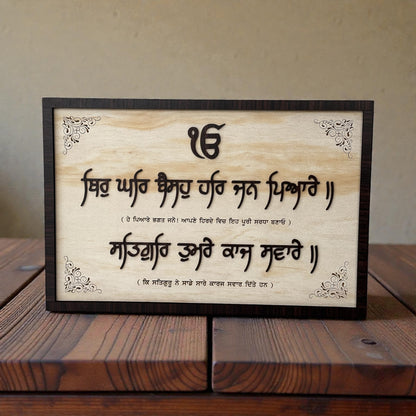 ੴ
ਥਿਰੁ ਘਰਿ ਬੈਸਹੁ ਹਰਿ ਜਨ ਪਿਆਰੇ ॥
( ਹੇ ਪਿਆਰੇ ਭਗਤ ਜਨੋ! ਆਪਣੇ ਹਿਰਦੇ ਵਿਚ ਇਹ ਪੂਰੀ ਸਰਧਾ ਬਣਾਓ )
ਸਤਿਗੁਰਿ ਤੁਮਰੇ ਕਾਜ ਸਵਾਰੇ ॥
( ਕਿ ਸਤਿਗੁਰੂ ਨੇ ਸਾਡੇ ਸਾਰੇ ਕਾਰਜ ਸਵਾਰ ਦਿੱਤੇ ਹਨ )